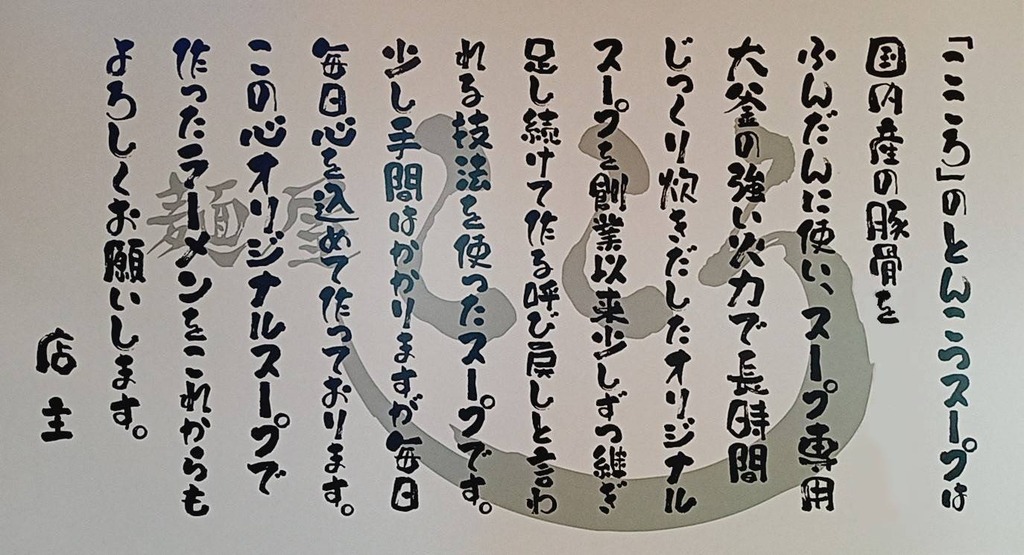 「こころ」のとんこつスープは
国内産の豚骨を
ふんだんに使い、スープ専用
大釜の強い火力で長時間
じっくり炊きだしたオリジナル
スープを創業以来少しずつ継ぎ
足し続けて作る呼び戻しと言わ
れる技法を使ったスープです。
少し手間はかかりますが毎日
毎日心を込めて作っております。
この心オリジナルスープで
作ったラーメンをこれからも
よろしくお願いします。
店主
麺屋
こころ